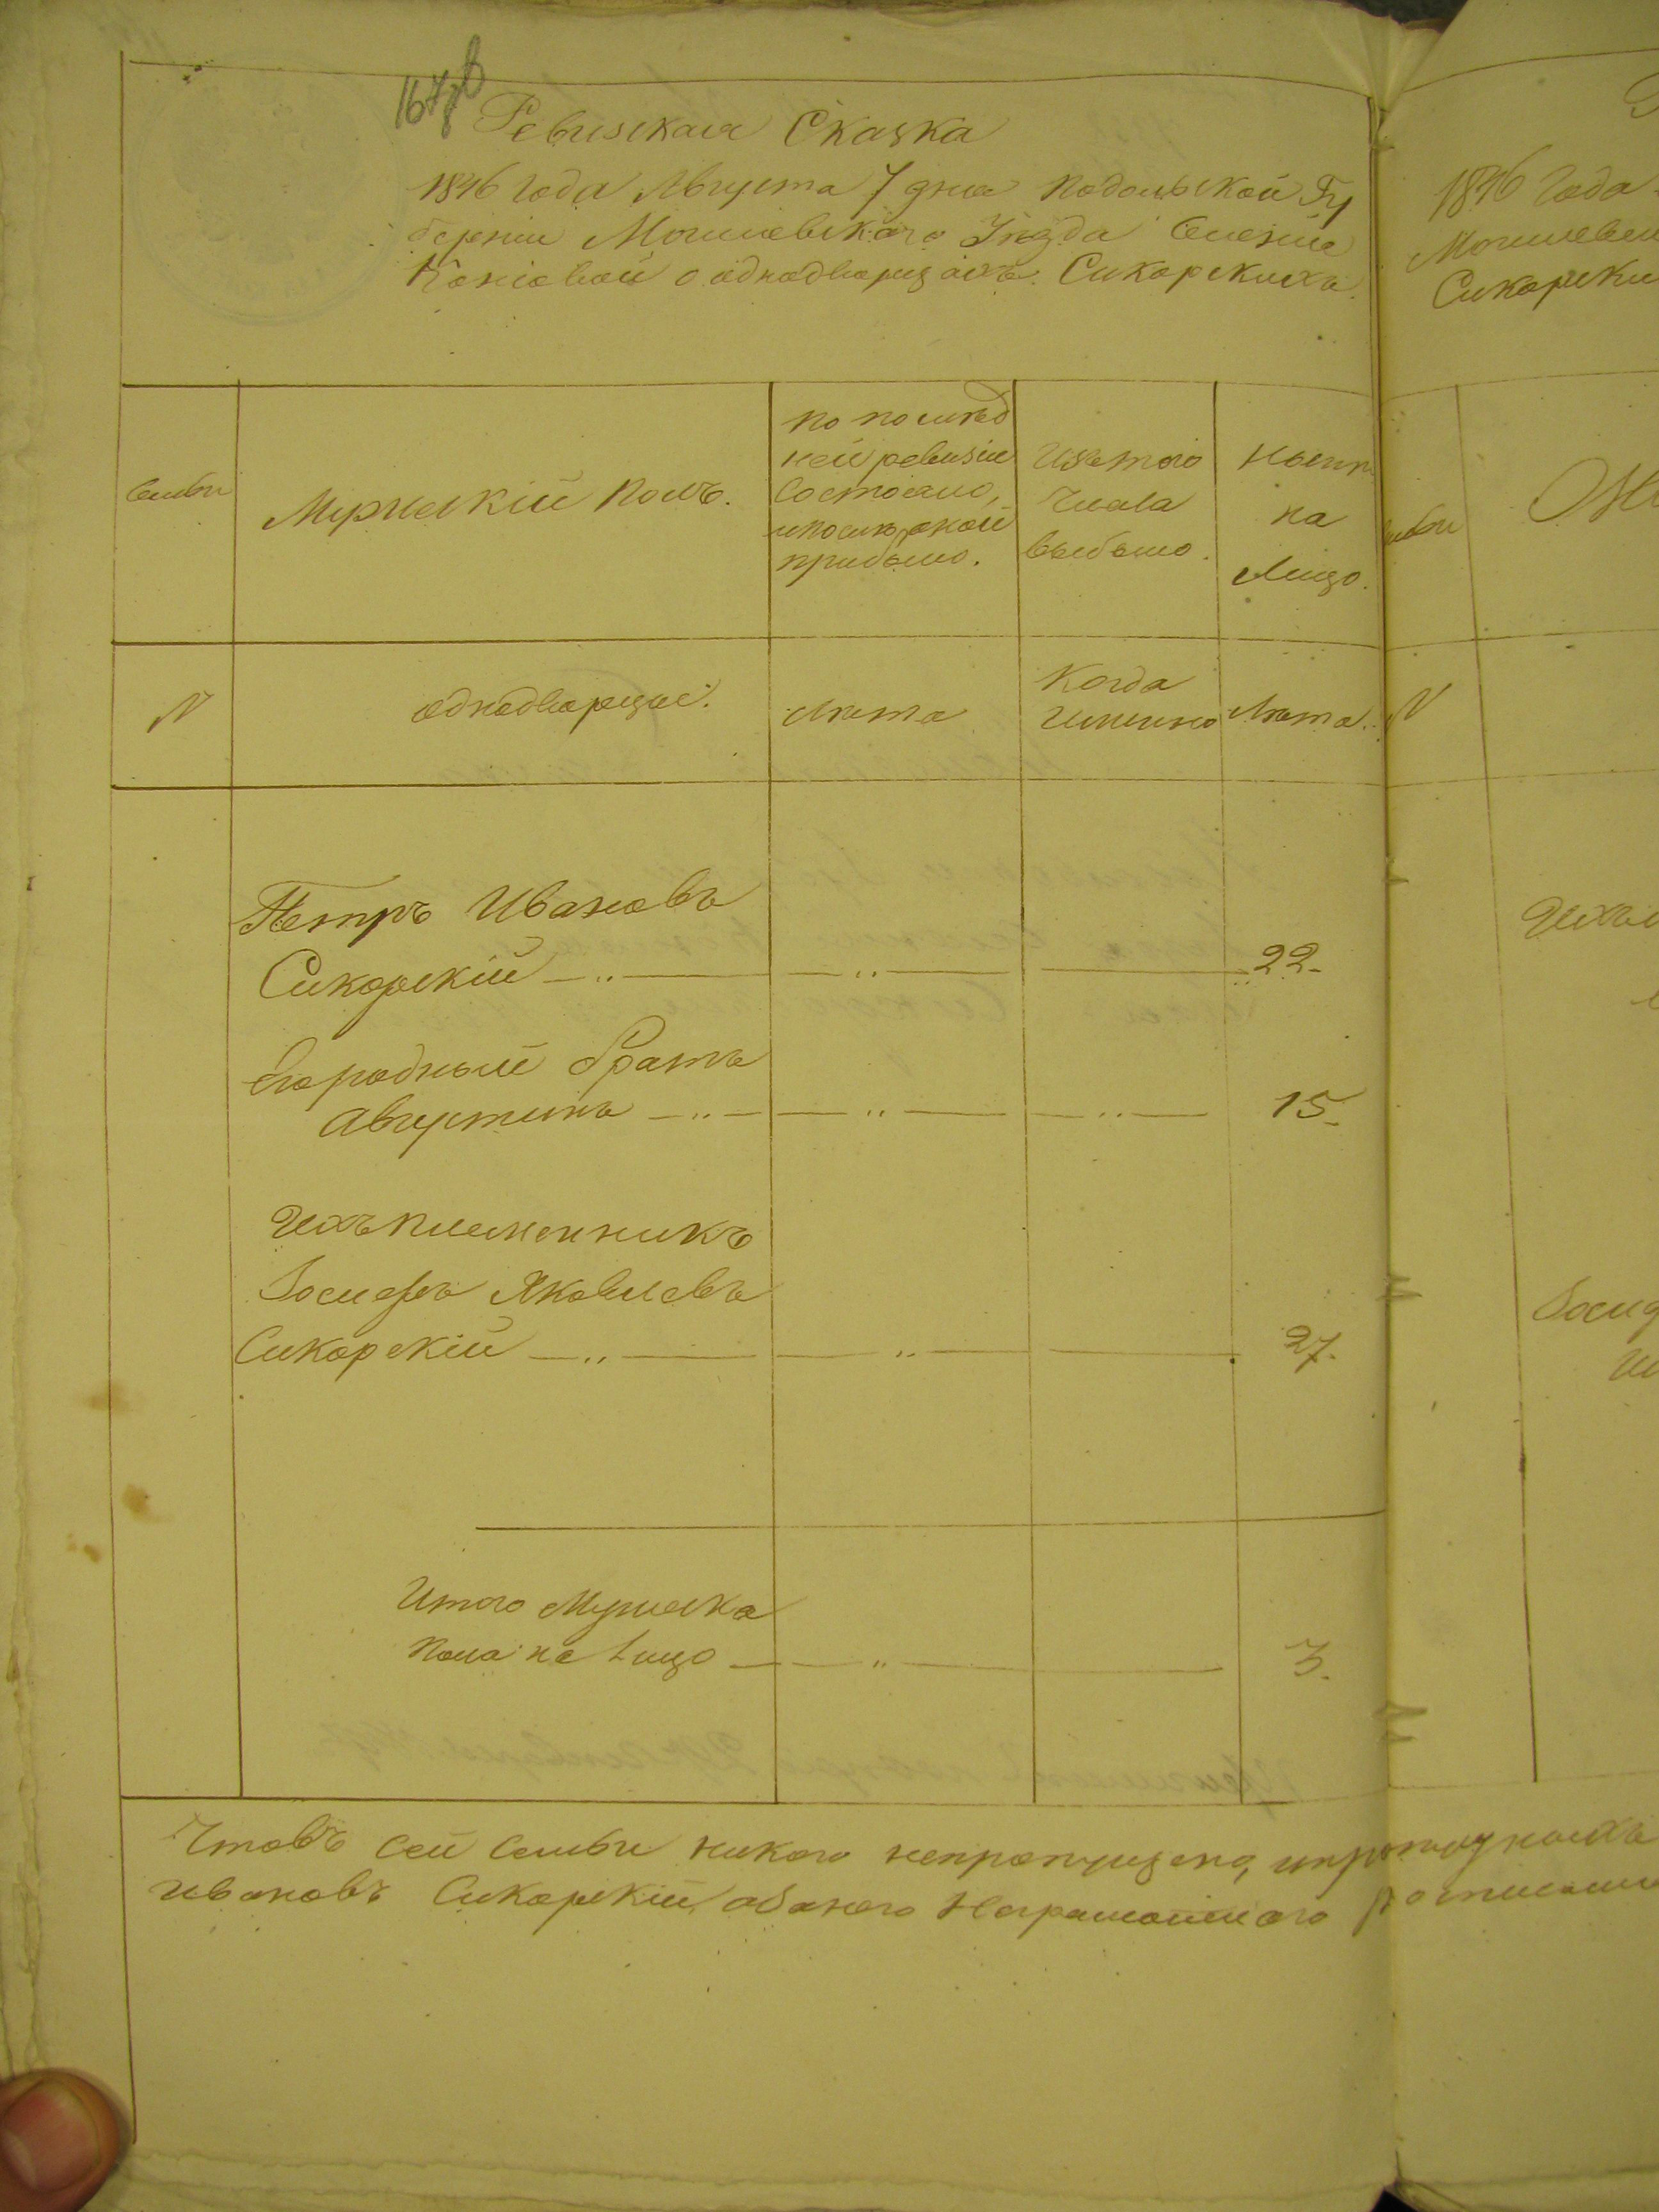 167
Ревизская Сказка
1846 года Августа 7 дня Подольской Гу
берніи Могилевскаго Уѣзда Селенія
о однодворцахъ Сикорскихъ.
Семьи
Мужескій полъ.
по послѣд
ней ревизіи
Состояло,
и после оной
прибыло.
Изътого
Числа
выбыло.
Нынѣ
на
Лицо.
N
однодворцы.
Лѣта
Когда
Именно
Лѣта.
Петръ Ивановъ
Сикорскій 22.
Егородный братъ
Августинъ 15.
Ихъ племенникъ
Іосифъ Яковлевъ
Сикорскій 27.
Итого Мужеска
пола на лицо 3.
Чтовъ сей семьи никого непропущено,
Ивановъ Сикорскій, а Занего Неграмотного
1846 Года
Сикорски
N